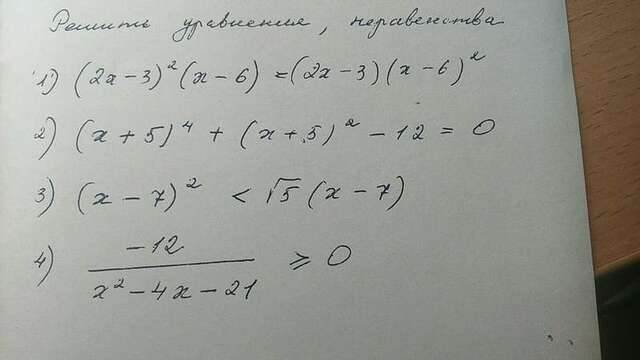 Решить уравнения, неравенства
1) (2x-3)²(x-6) = (2x-3)(x-6)²
2) (x+5)⁴ + (x+5)² - 12 = 0
3) (x-7)² < √5(x-7)
4) -12 / (x²-4x-21) ≥ 0